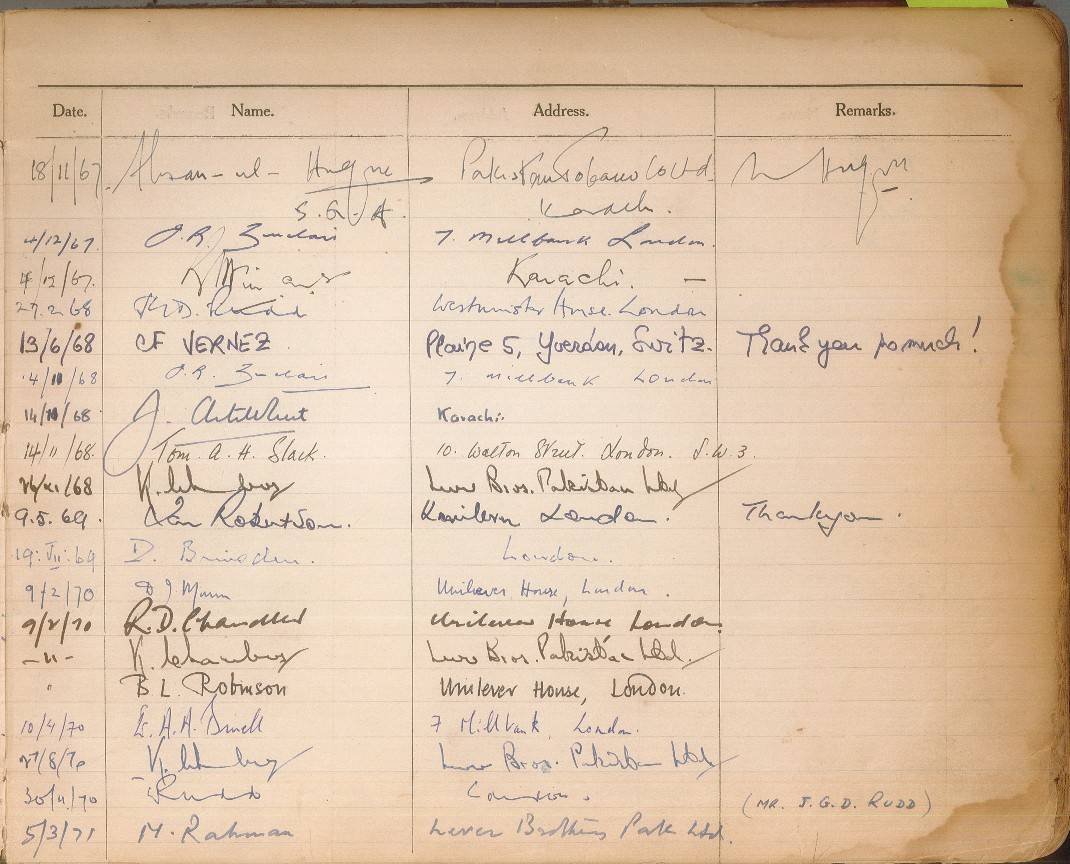 Date. Name. Address. Remarks.
18/11/67 Ahsan-ul-Huque Pakistan Tobacco Co Ltd.
S.G.A. Karachi.
4/12/67. J.R. Sinclair 7. Millbank London.
4/12/67. Karachi. —
27.2.68 Rudd Westminster House. London
13/6/68 CF VERNEZ Plaine 5, Yverdon, Switz. Thank you so much!
14/10/68 J.R. Sinclair 7. Millbank London
14/10/68 J. Karachi.
14/11/68. Tom. A. H. Slack. 10. Walton Street. London. S.W.3.
/68 K. Lever Bros. Pakistan Ltd
9.5.69. Ian Robertson. Unilever London. Thankyou.
19:VII:69 D. London.
9/2/70 D J Mann Unilever House, London.
9/2/70 R.D. Chandler Unilever House London.
-"- K. Lever Bros. Pakistan Ltd.
" B L. Robinson Unilever House, London.
10/4/70 A.H. 7 Millbank, London.
27/8/70 K. Lever Bros. Pakistan Ltd
30/11/70 Rudd London. (MR. J.G.D. RUDD)
5/3/71 M. Rahman Lever Brothers Pak Ltd.